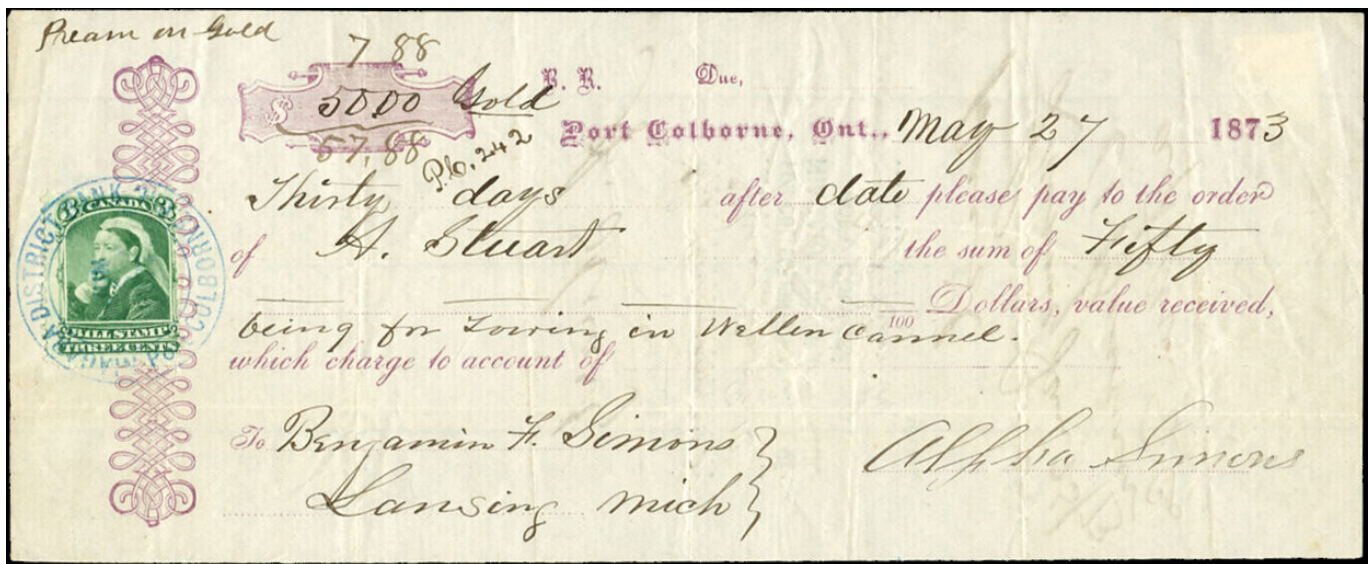 Pream on Gold
7 88
$ 50.00 Gold
57,88 P.C. 242
B. R. Due,
Port Colborne, Ont., May 27 1873
Thirty days after date please pay to the order
of A. Stuart the sum of Fifty
/100 Dollars, value received,
being for Towing in Wellen Cannel.
which charge to account of
To Benjamin F. Simons
Lansing Mich
Alpha Simons
3 CANADA 3
BILL STAMP
THREE CENTS
DISTRICT BANK COLBORNE